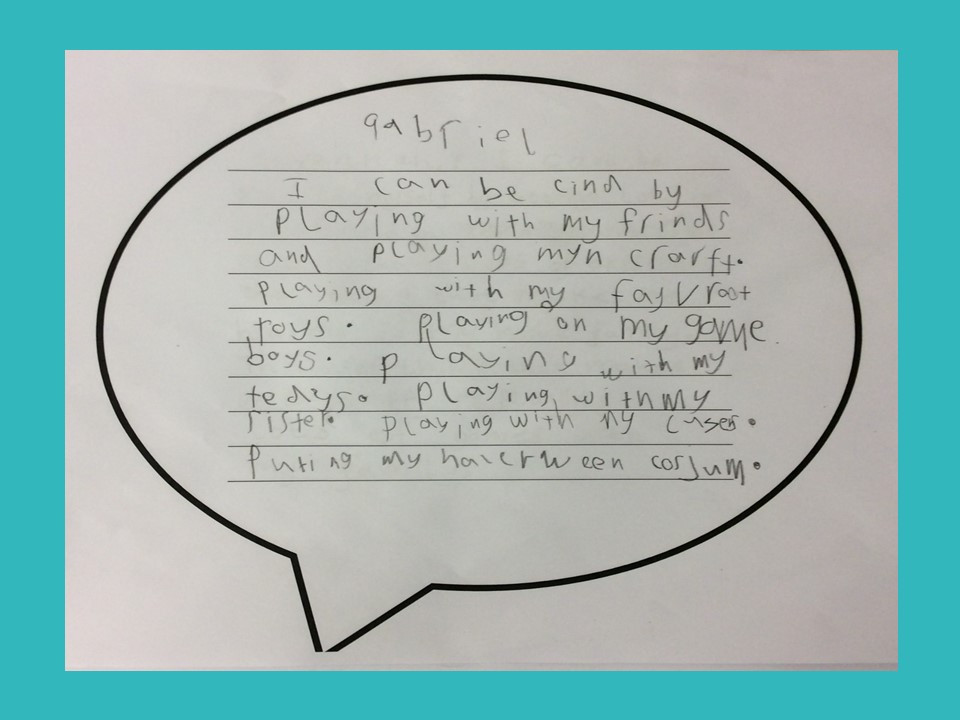 gabriel
I can be cind by
playing with my frinds
and playing myn crarft.
playing with my fayVroot
toys. playing on my game
boys. playing with my
tedys. playing with My
sister. playing with my cuser.
puting my halerween cosJum.